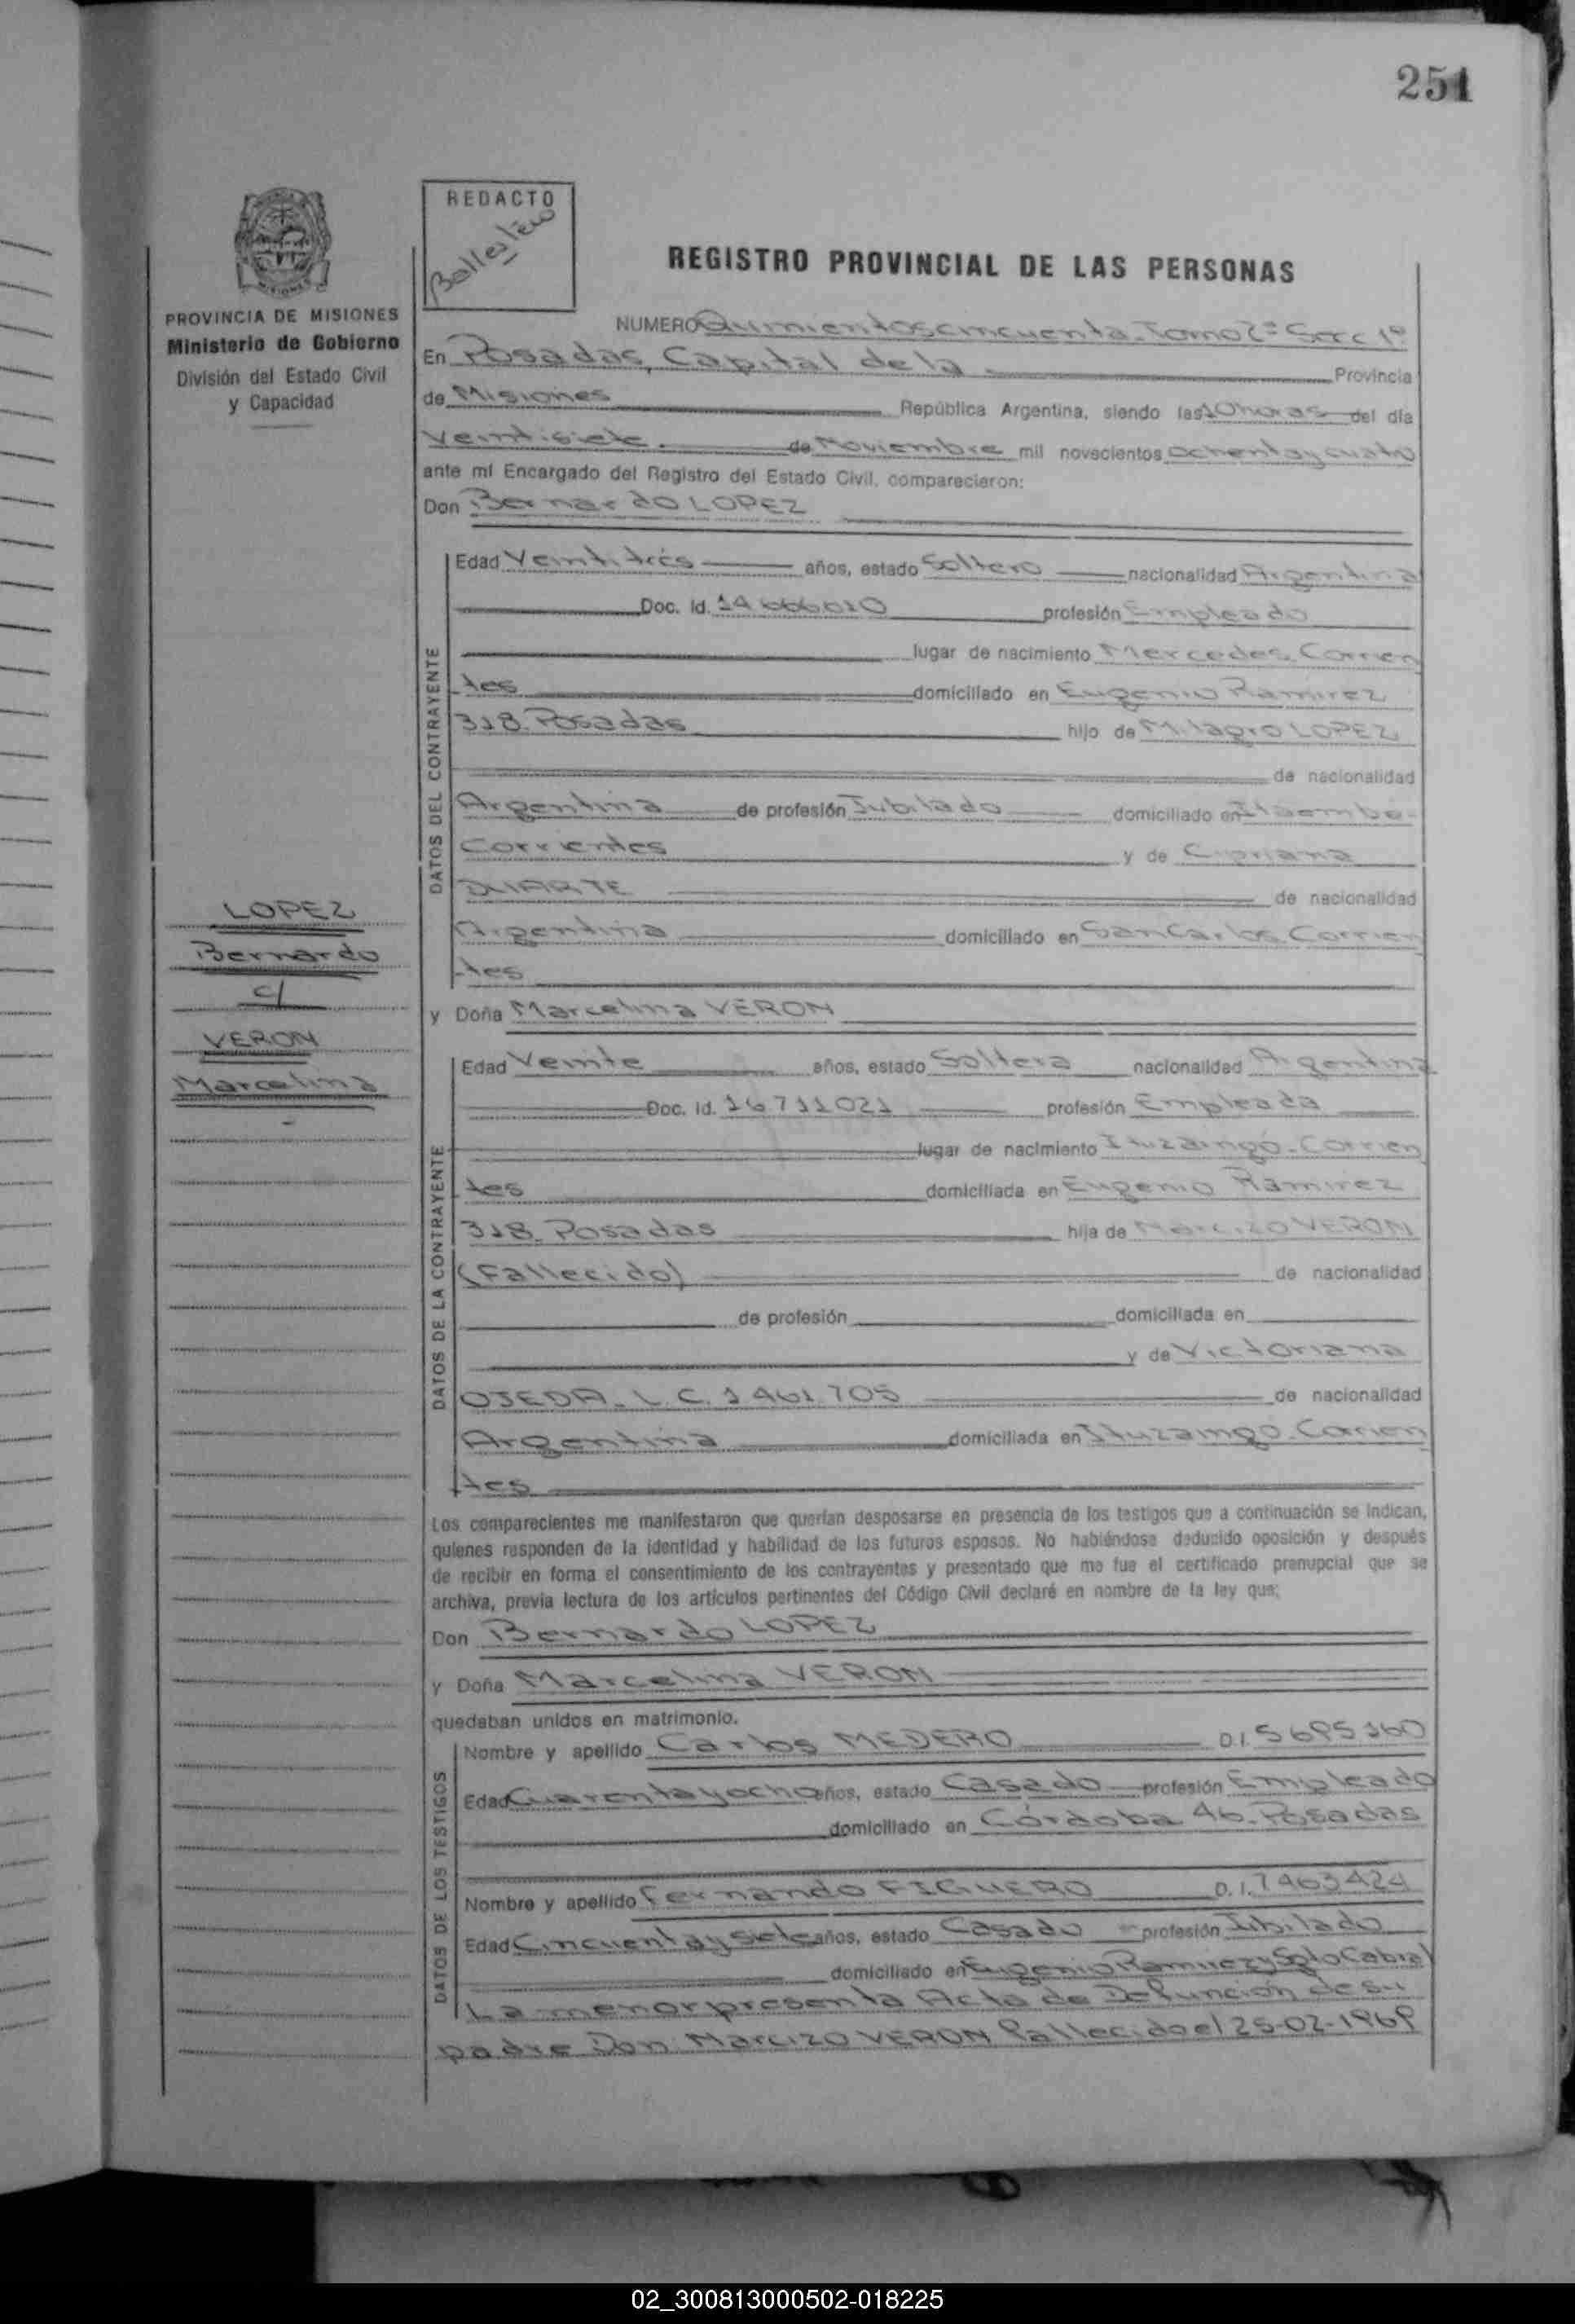 251
REDACTO
REGISTRO PROVINCIAL DE LAS PERSONAS
PROVINCIA DE MISIONES
Ministerio de Gobierno
División del Estado Civil
y Capacidad
NUMERO Quinientos cincuenta. Tomo 2º Secc 1º
En Posadas, Capital de la Provincia
de Misiones República Argentina, siendo las 10 horas del día
veintisiete de Noviembre mil novecientos ochenta y cuatro
ante mí Encargado del Registro del Estado Civil, comparecieron:
Don Bernardo LOPEZ
DATOS DEL CONTRAYENTE
Edad Veintitrés años, estado Soltero nacionalidad Argentina
Doc. Id. profesión Empleado
lugar de nacimiento Mercedes. Corrien
tes domiciliado en Eugenio Ramirez
318. Posadas hijo de Milagro LOPEZ
de nacionalidad
Argentina de profesión Jubilado domiciliado en
Corrientes y de Cipriana
DUARTE de nacionalidad
Argentina domiciliado en San Carlos. Corrien
tes
LOPEZ
Bernardo
c/
VERON
Marcelina
y Doña Marcelina VERON
DATOS DE LA CONTRAYENTE
Edad Veinte años, estado Soltera nacionalidad Argentina
Doc. Id. 16.711.021 profesión Empleada
lugar de nacimiento Ituzaingó. Corrien
tes domiciliada en Eugenio Ramirez
318. Posadas hija de Marcizo VERON
(Fallecido) de nacionalidad
de profesión domiciliada en
y de Victoriana
OJEDA. L.C. 1.461.705 de nacionalidad
Argentina domiciliada en Ituzaingo. Corrien
tes
Los comparecientes me manifestaron que querían desposarse en presencia de los testigos que a continuación se indican,
quienes responden de la identidad y habilidad de los futuros esposos. No habiéndose deducido oposición y después
de recibir en forma el consentimiento de los contrayentes y presentado que me fue el certificado prenupcial que se
archiva, previa lectura de los artículos pertinentes del Código Civil declaré en nombre de la ley que;
Don Bernardo LOPEZ
y Doña Marcelina VERON
quedaban unidos en matrimonio.
DATOS DE LOS TESTIGOS
Nombre y apellido Carlos MEDERO D.I. 5695160
Edad Cuarenta y ocho años, estado Casado profesión Empleado
domiciliado en Córdoba 46. Posadas
Nombre y apellido Fernando FIGUERO D.I. 7463424
Edad Cincuenta y siete años, estado Casado profesión Jubilado
domiciliado en Eugenio Ramirez y Soto Cabral
La menor presenta Acta de Defunción de su
padre Don Marcizo VERON fallecido el 25-02-1969
02_300813000502-018225